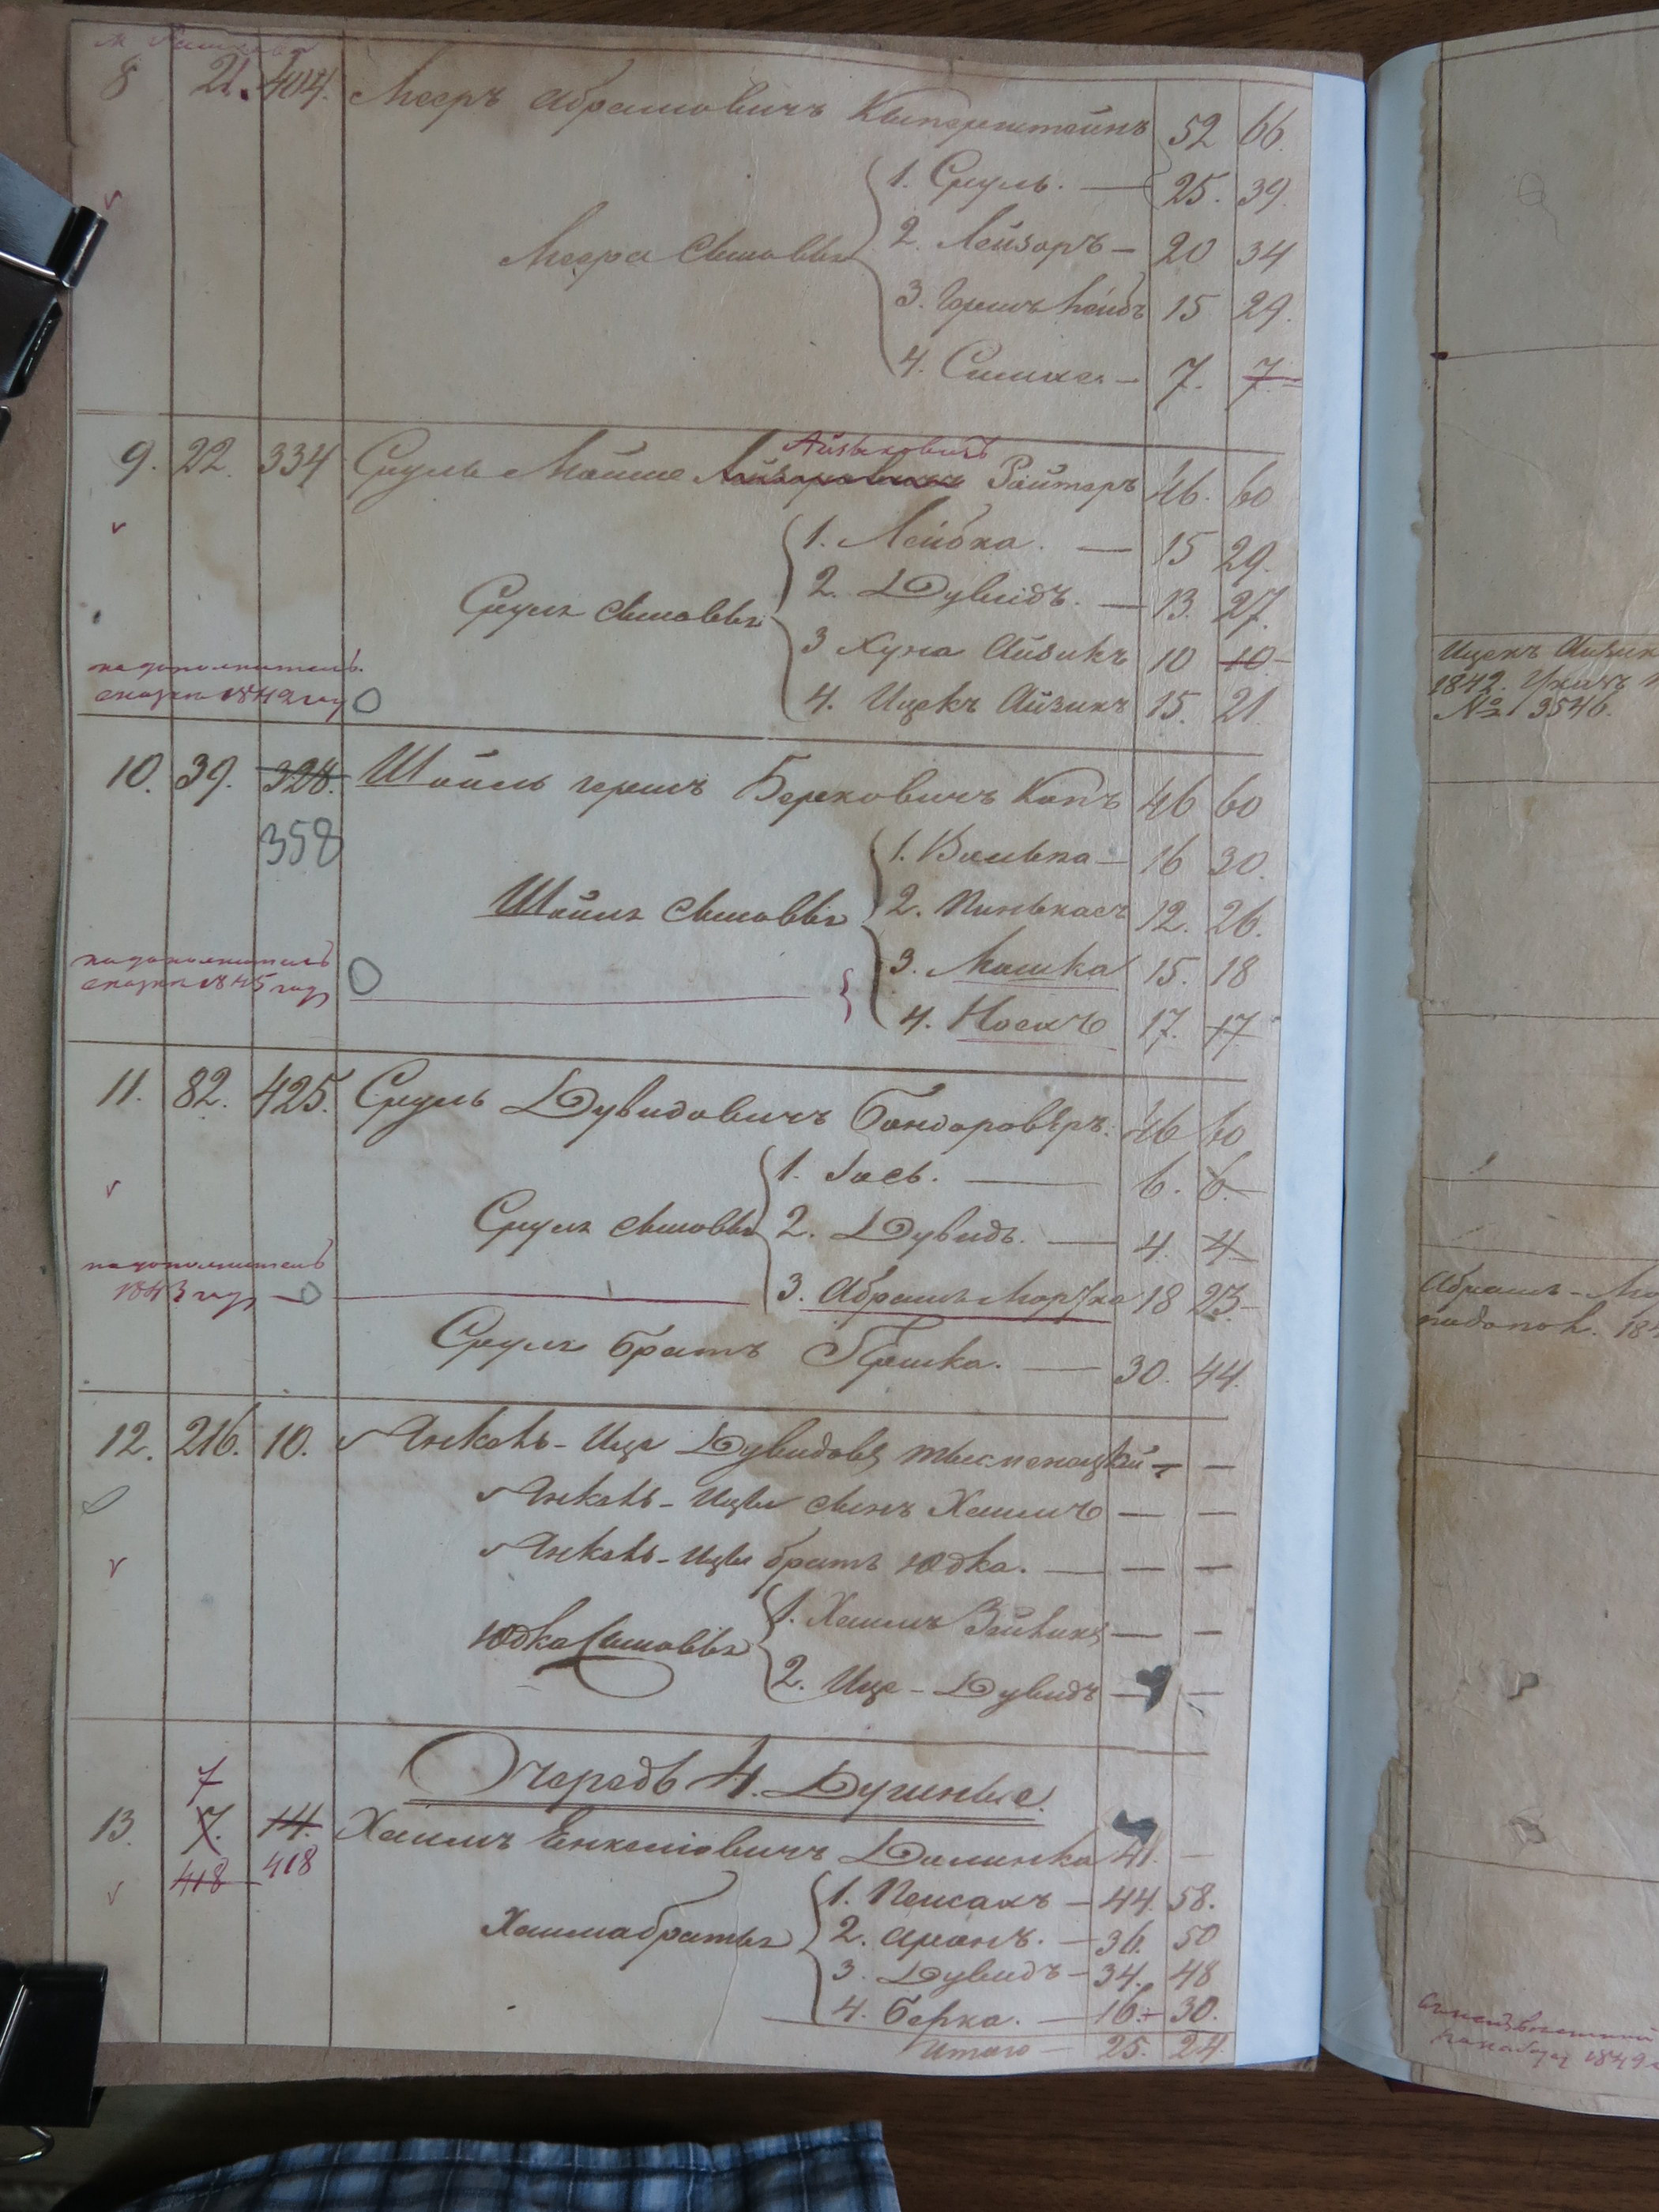 8 21. 404. Мееръ Абрамовичъ Киперштейнъ 52 66.
1. Сруль. — 25. 39.
Меера сыновья 2. Лейзоръ — 20 34
3. Гершъ Лейбъ 15 29.
4. Симха — 7. 7.
Айзыковичъ
9. 22. 334 Сруль Мойше Лейзеровичъ Райтеръ 46. 60
1. Лейбка. — 15 29.
2. Дувидъ. — 13. 27.
Сруля сыновья
3 Хуна Айзикъ 10 10
по дополнитель.
сказки 1842 году 4. Ицекъ Айзикъ 15. 21.
10. 39. 328. Шоиль Гершъ Берковичъ Капъ 46 60
358
1. Волька — 16 30.
Шоиля сыновья 2. Пинькасъ 12. 26.
по дополнитель
сказки 1845 году 3. Мошка 15. 18
4. Носихъ 17. 17
11. 82. 425. Сруль Дувидовичъ Бондоровяръ. 46 60
1. Іось. — 6. 6.
Сруля сыновья 2. Дувидъ. — 4. 4
по дополнитель
1843 году — 3. Абрамъ Мортко 18 23
Сруля братъ Гершка. — 30. 44.
12. 216. 10. Янкель-Ицы Дувидовъ Тысменецкій — —
Янкель-Ицы сынъ Хаимъ — —
Янкель-Ицы братъ Юдка. — — —
1. Хаимъ Зейликъ — —
Юдка сыновья
2. Ице-Дувидъ — —
Очередь 4. Душные.
7
13. 7. 14. Хаимъ Енкелiовичъ Долинка 41. —
418 418
1. Пейсахъ — 44. 58.
Хаима братья 2. Аронъ. — 36. 50
3. Дувидъ — 34. 48
4. Берка. — 16. 30.
Итого — 25. 24.
Ицекъ Айзик
1842. Указъ
№ 3546.
Абрамъ-Мо
по допол. 184